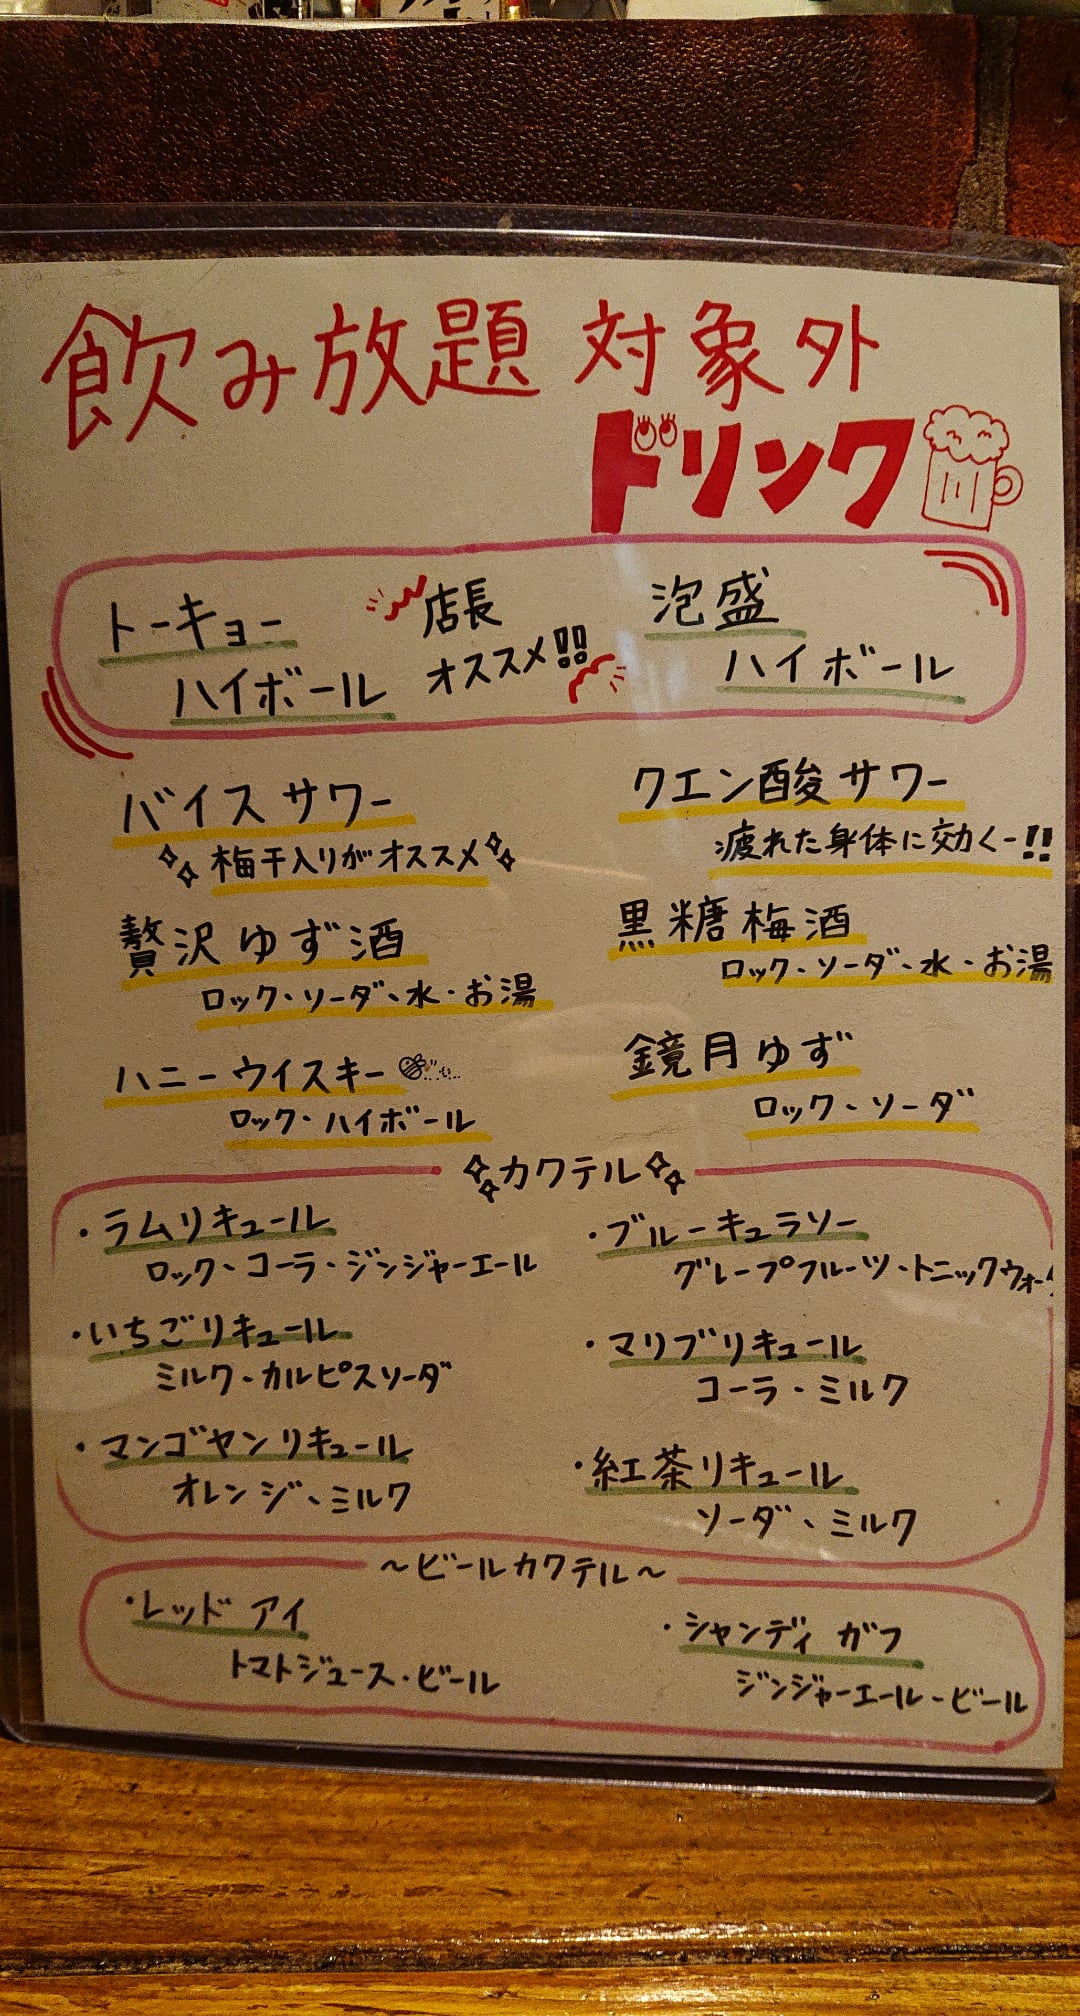 飲み放題 対象外
ドリンク
トーキョー
ハイボール
店長
オススメ!!
泡盛
ハイボール
バイスサワー
梅干入りがオススメ
クエン酸サワー
疲れた身体に効くー!!
贅沢ゆず酒
ロック・ソーダ、水・お湯
黒糖梅酒
ロック・ソーダ、水・お湯
ハニーウイスキー
ロック・ハイボール
鏡月ゆず
ロック、ソーダ
カクテル
・ラムリキュール
ロック、コーラ・ジンジャーエール
・ブルーキュラソー
グレープフルーツ・トニックウォー
・いちごリキュール
ミルク・カルピスソーダ
・マリブリキュール
コーラ・ミルク
・マンゴヤンリキュール
オレンジ、ミルク
・紅茶リキュール
ソーダ、ミルク
~ビールカクテル~
・レッドアイ
トマトジュース・ビール
・シャンディガフ
ジンジャーエール・ビール